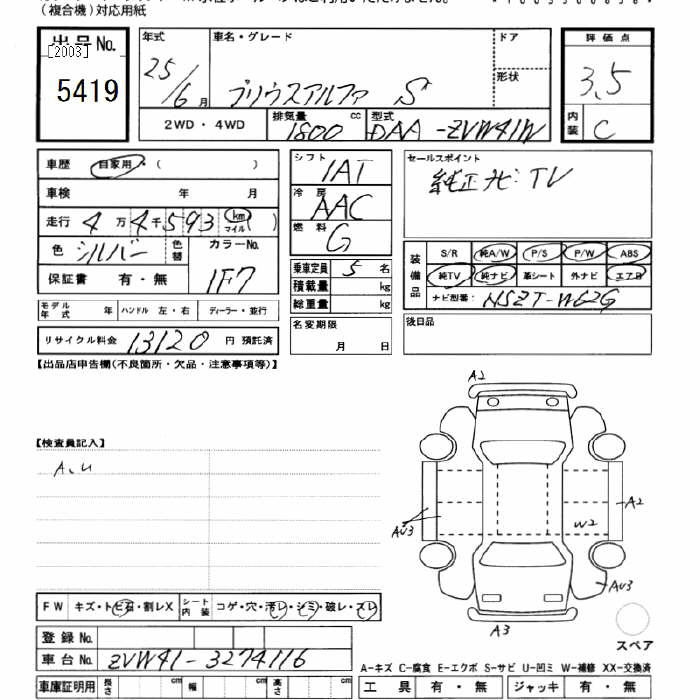 (複合機)対応用紙
出品No.
[2003]
5419
年式 25/6月
車名・グレード プリウスアルファ S
ドア
形状
2WD・4WD
排気量 1800 cc
型式 DAA-ZVW41W
評価点 3.5
内装 C
車歴 自家用・( )
車検 年 月
走行 4万4千593 km マイル( )
色 シルバー 色替 カラーNo. 1F7
保証書 有・無
モデル年式 年 ハンドル 左・右 ディーラー・並行
リサイクル料金 13120 円 預託済
シフト IAT
冷房 AAC
燃料 G
乗車定員 5 名
積載量 kg
総重量 kg
名変期限 月 日
セールスポイント
純正ナビ:TV
装備品
S/R 純A/W P/S P/W ABS
純TV 純ナビ 革シート 外ナビ エアB
ナビ型番: NSZT-W62G
後日品
【出品店申告欄(不良箇所・欠品・注意事項等)】
【検査員記入】
A.U
A2
A2
W2
AU3
AU3
A3
スペア
FW キズ・トビ石・割レX シート内装 コゲ・穴・汚レ・シミ・破レ・スレ
登録No.
車台No. ZVW41-3274116
車庫証明用 長さ cm 幅 cm 高さ cm
A-キズ C-腐食 E-エクボ S-サビ U-凹ミ W-補修 XX-交換済
工具 有・無 ジャッキ 有・無